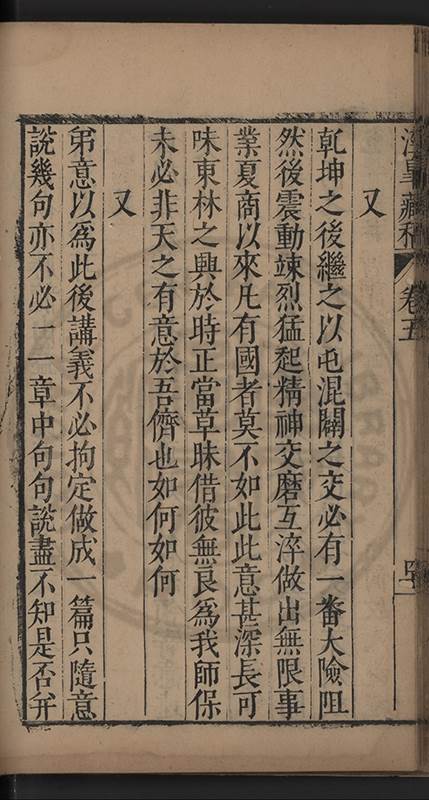 涇皐藏稿 卷五
又
乾坤之後繼之以屯混闢之交必有一番大險阻
然後震動竦烈猛起精神交磨互淬做出無限事
業夏商以來凡有國者莫不如此此意甚深長可
味東林之興於時正當草昧借彼無良爲我師保
未必非天之有意於吾儕也如何如何
又
弟意以爲此後講義不必拘定做成一篇只隨意
說幾句亦不必一一章中句句說盡不知是否幷